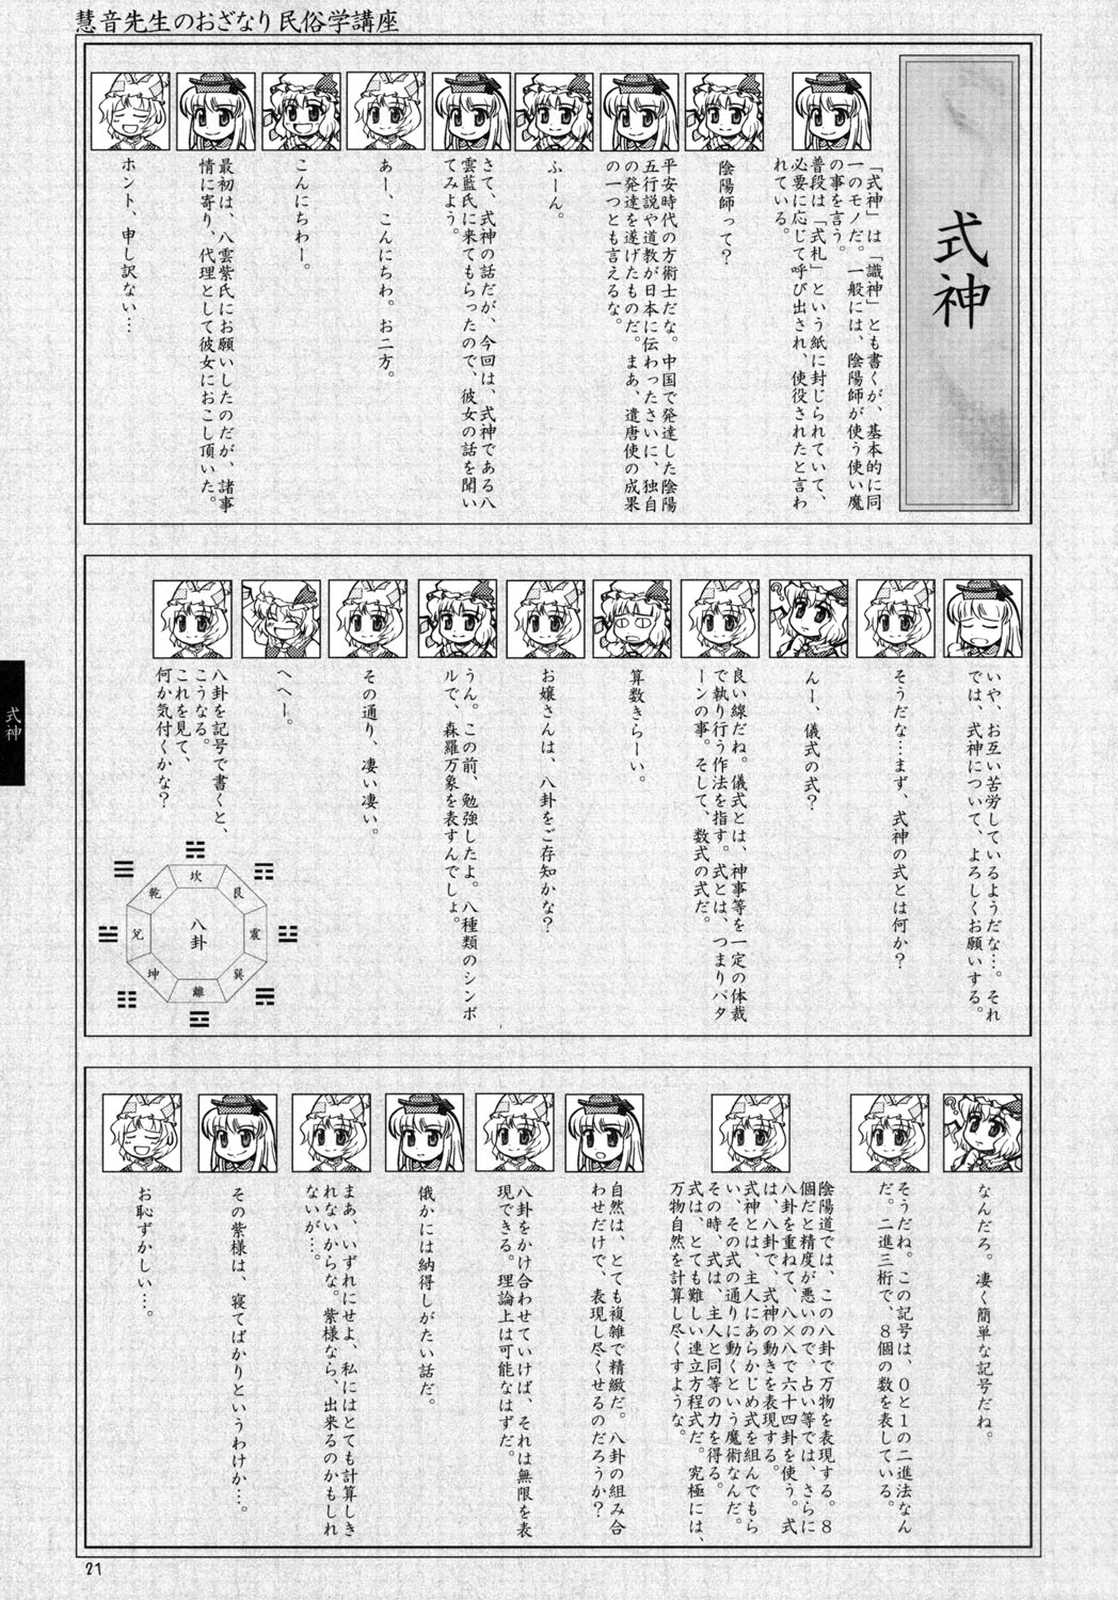 慧音先生のおざなり民俗学講座
式神
「式神」は「識神」とも書くが、基本的に同
一のモノだ。一般には、陰陽師が使う使い魔
の事を言う。
普段は「式札」という紙に封じられていて、
必要に応じて呼び出され、使役されたと言わ
れている。
陰陽師って？
平安時代の方術士だな。中国で発達した陰陽
五行説や道教が日本に伝わったさいに、独自
の発達を遂げたものだ。まあ、遣唐使の成果
の一つとも言えるな。
ふーん。
さて、式神の話だが、今回は、式神である八
雲藍氏に来てもらったので、彼女の話を聞い
てみよう。
あー、こんにちわ。お二方。
こんにちわー。
最初は、八雲紫氏にお願いしたのだが、諸事
情に寄り、代理として彼女におこし頂いた。
ホント、申し訳ない…
いや、お互い苦労しているようだな…。それ
では、式神について、よろしくお願いする。
そうだな…まず、式神の式とは何か？
んー、儀式の式？
良い線だね。儀式とは、神事等を一定の体裁
で執り行う作法を指す。式とは、つまりパタ
ーンの事。そして、数式の式だ。
算数きらーい。
お嬢さんは、八卦をご存知かな？
うん。この前、勉強したよ。八種類のシンボ
ルで、森羅万象を表すんでしょ。
その通り、凄い凄い。
へへー。
八卦を記号で書くと、
こうなる。
これを見て、
何か気付くかな？
☵
☰
☶
坎
乾
艮
☱
兌
八卦
震
☳
坤
巽
離
☷
☴
☲
式神
なんだろ。凄く簡単な記号だね。
そうだね。この記号は、０と１の二進法なん
だ。二進三桁で、８個の数を表している。
陰陽道では、この八卦で万物を表現する。８
個だと精度が悪いので、占い等では、さらに
八卦を重ねて、八×八で六十四卦を使う。式
は、八卦で、式神の動きを表現する。
式神とは、主人にあらかじめ式を組んでもら
い、その式の通りに動くという魔術なんだ。
その時、式は、主人と同等の力を得る。
式は、とても難しい連立方程式だ。究極には、
万物自然を計算し尽くすような。
自然は、とても複雑で精緻だ。八卦の組み合
わせだけで、表現し尽くせるのだろうか？
八卦をかけ合わせていけば、それは無限を表
現できる。理論上は可能なはずだ。
俄かには納得しがたい話だ。
まあ、いずれにせよ、私にはとても計算しき
れないからな。紫様なら、出来るのかもしれ
ないが…。
その紫様は、寝てばかりというわけか…。
お恥ずかしい…。
21